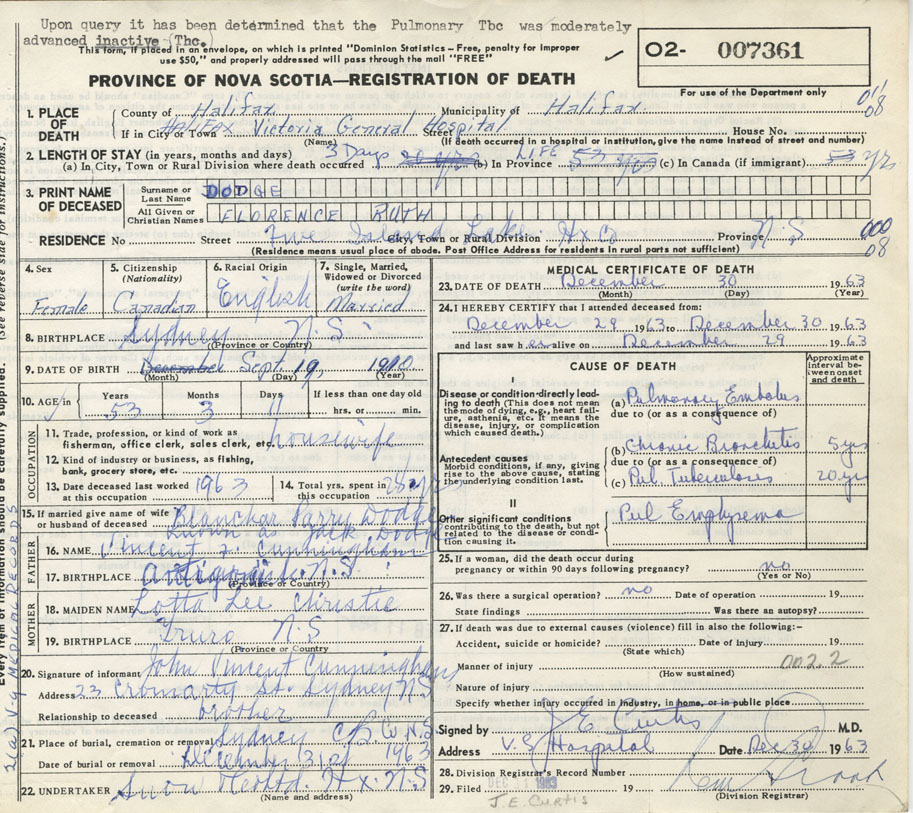 Upon query it has been determined that the Pulmonary Tbc was moderately
advanced inactive (Thc.)
This form, if placed in an envelope, on which is printed "Dominion Statistics – Free, penalty for improper
use $50," and properly addressed will pass through the mail "FREE"
O2- 007361
PROVINCE OF NOVA SCOTIA—REGISTRATION OF DEATH
For use of the Department only
1. PLACE OF DEATH
County of Halifax Municipality of Halifax
If in City or Town Halifax Victoria General Hospital Street House No.
(Name) (If death occurred in a hospital or institution, give the name instead of street and number)
08
2. LENGTH OF STAY (in years, months and days)
(a) In City, Town or Rural Division where death occurred 3 Days (b) In Province LIFE (c) In Canada (if immigrant)
3. PRINT NAME OF DECEASED
Surname or Last Name DODGE
All Given or Christian Names FLORENCE RUTH
RESIDENCE No Street Five Island Lake City, Town or Rural Division Hx Co Province N.S
(Residence means usual place of abode. Post Office Address for residents in rural parts not sufficient)
000
08
4. Sex Female
5. Citizenship (Nationality) Canadian
6. Racial Origin English
7. Single, Married, Widowed or Divorced (write the word) Married
8. BIRTHPLACE Sydney N.S.
(Province or Country)
9. DATE OF BIRTH December Sept. 19, 1910
(Month) (Day) (Year)
10. AGE in Years 53 Months 3 Days 11 If less than one day old hrs. or min.
OCCUPATION
11. Trade, profession, or kind of work as fisherman, office clerk, sales clerk, etc. housewife
12. Kind of industry or business, as fishing, bank, grocery store, etc.
13. Date deceased last worked at this occupation 1963
14. Total yrs. spent in this occupation 28 yrs
15. If married give name of wife or husband of deceased Blanchar Parry Dodge
known as Jack Dodge
FATHER
16. NAME Vincent J. Cunningham
17. BIRTHPLACE Antigonish N.S.
(Province or Country)
MOTHER
18. MAIDEN NAME Lotta Lee Christie
19. BIRTHPLACE Truro N.S
(Province or Country)
20. Signature of informant John Vincent Cunningham
Address 23 Cromarty St. Sydney N.S
Relationship to deceased brother
21. Place of burial, cremation or removal Sydney C.B. Co N.S
Date of burial or removal December 31st 1963
22. UNDERTAKER Snow Hx. N.S
(Name and address)
MEDICAL CERTIFICATE OF DEATH
23. DATE OF DEATH December 30 1963
(Month) (Day) (Year)
24. I HEREBY CERTIFY that I attended deceased from:
December 29 1963 to December 30 1963
and last saw her alive on December 29 1963
CAUSE OF DEATH
Approximate interval between onset and death
I
Disease or condition directly leading to death (This does not mean the mode of dying, e.g., heart failure, asthenia, etc. It means the disease, injury, or complication which caused death.)
(a) Pulmonary Embolus
due to (or as a consequence of)
Antecedent causes
Morbid conditions, if any, giving rise to the above cause, stating the underlying condition last.
(b) Chronic Bronchitis 5 yrs
due to (or as a consequence of)
(c) Pul. Tuberculosis 20 yrs
II
Other significant conditions contributing to the death, but not related to the disease or condition causing it.
Pul Emphysema
25. If a woman, did the death occur during pregnancy or within 90 days following pregnancy? no
(Yes or No)
26. Was there a surgical operation? no Date of operation 19
State findings Was there an autopsy?
27. If death was due to external causes (violence) fill in also the following:–
Accident, suicide or homicide? Date of injury 19
(State which)
Manner of injury 002.2
(How sustained)
Nature of injury
Specify whether injury occurred in industry, in home, or in public place
Signed by J E Curtis M.D.
Address V. G Hospital Date Dec 30 1963
28. Division Registrar's Record Number
29. Filed DEC 31 1963 19
(Division Registrar)
J. E. CURTIS
(See reverse side for instructions.)
Every item of information should be carefully supplied.
2(a) V. G MEDICAL RECORDS